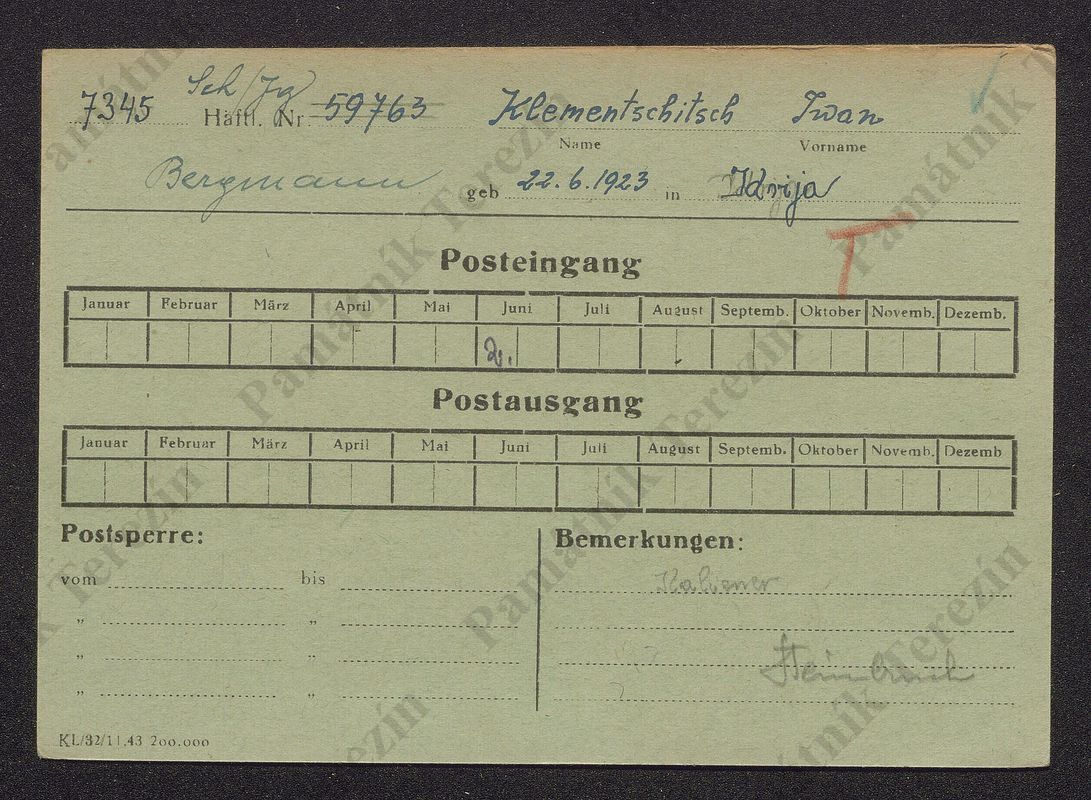 Sch/Jg
7345 Häftl. Nr. 59763 Klementschitsch Iwan
Name Vorname
Bergmann geb 22.6.1923 in Idrija
T
Posteingang
Januar Februar März April Mai Juni Juli August Septemb. Oktober Novemb. Dezemb.
2.
Postausgang
Januar Februar März April Mai Juni Juli August Septemb. Oktober Novemb. Dezemb
Postsperre: Bemerkungen:
vom bis
Italiener
" "
" "
" "
KL/32/11.43 200.000
Památník Terezín